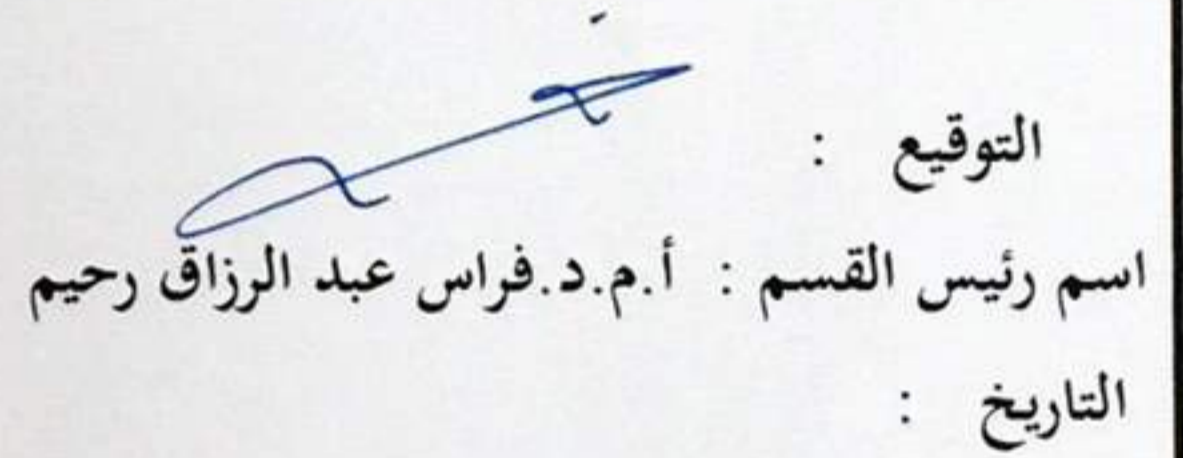 التوقيع :
اسم رئيس القسم : أ.م.د.فراس عبد الرزاق رحيم
التاريخ :